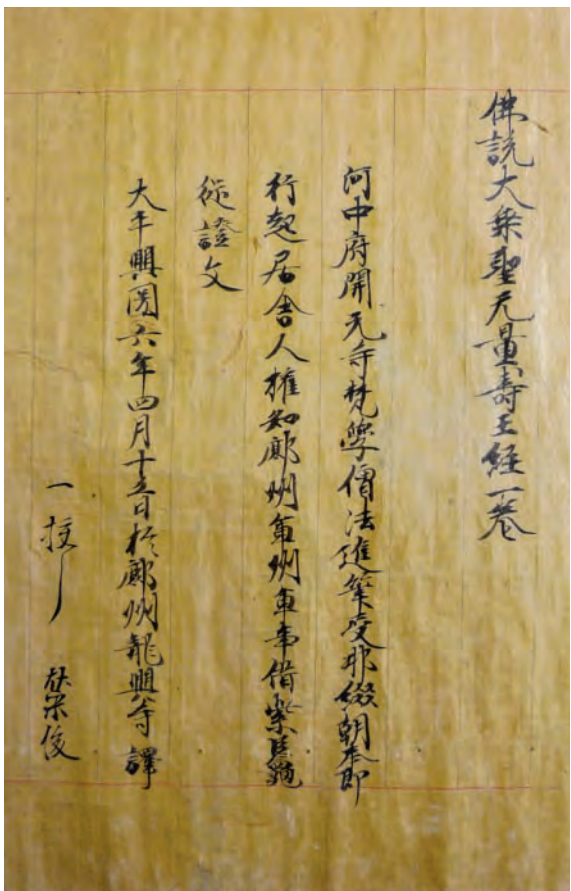 佛説大乗聖无量壽王經一卷
河中府開元寺梵學僧法進筆受并綴朝奉郎
行起居舎人權知鄜州軍州軍事借紫臣龜
從證文
大平興國六年四月十五日於鄜州龍興寺 譯
一挍了 榮俊